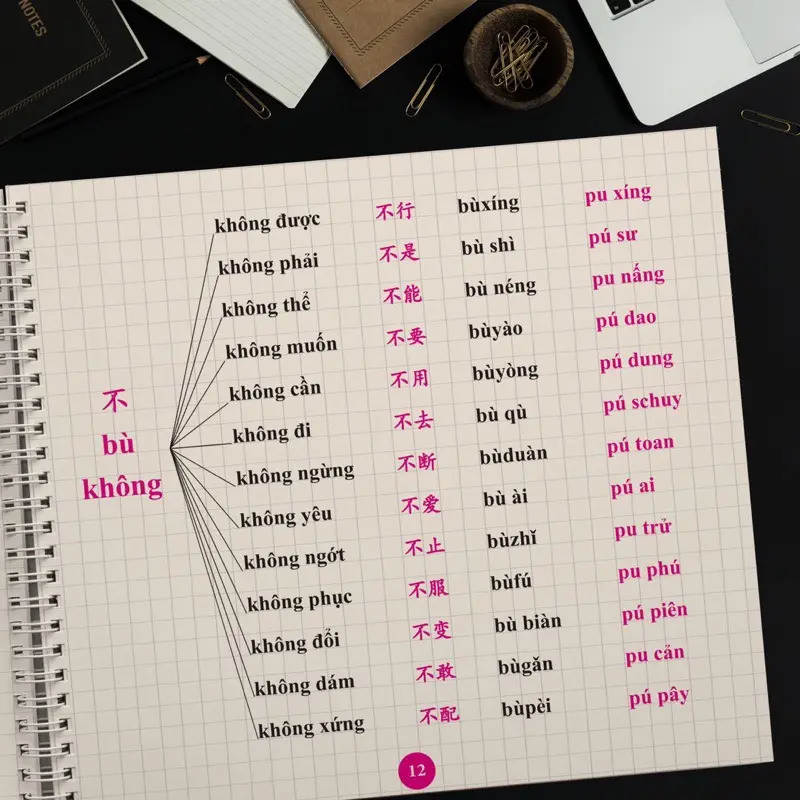 NOTES
không được 不行 bùxíng pu xíng
không phải 不是 bù shì pú sư
không thể 不能 bù néng pu nấng
không muốn 不要 bùyào pú dao
không cần 不用 bùyòng pú dung
không đi 不去 bù qù pú schuy
không ngừng 不断 bùduàn pú toan
không yêu 不爱 bù ài pú ai
không ngớt 不止 bùzhǐ pu trử
không phục 不服 bùfú pu phú
không đổi 不变 bù biàn pú piên
không dám 不敢 bùgǎn pu cản
không xứng 不配 bùpèi pú pây
不
bù
không
12